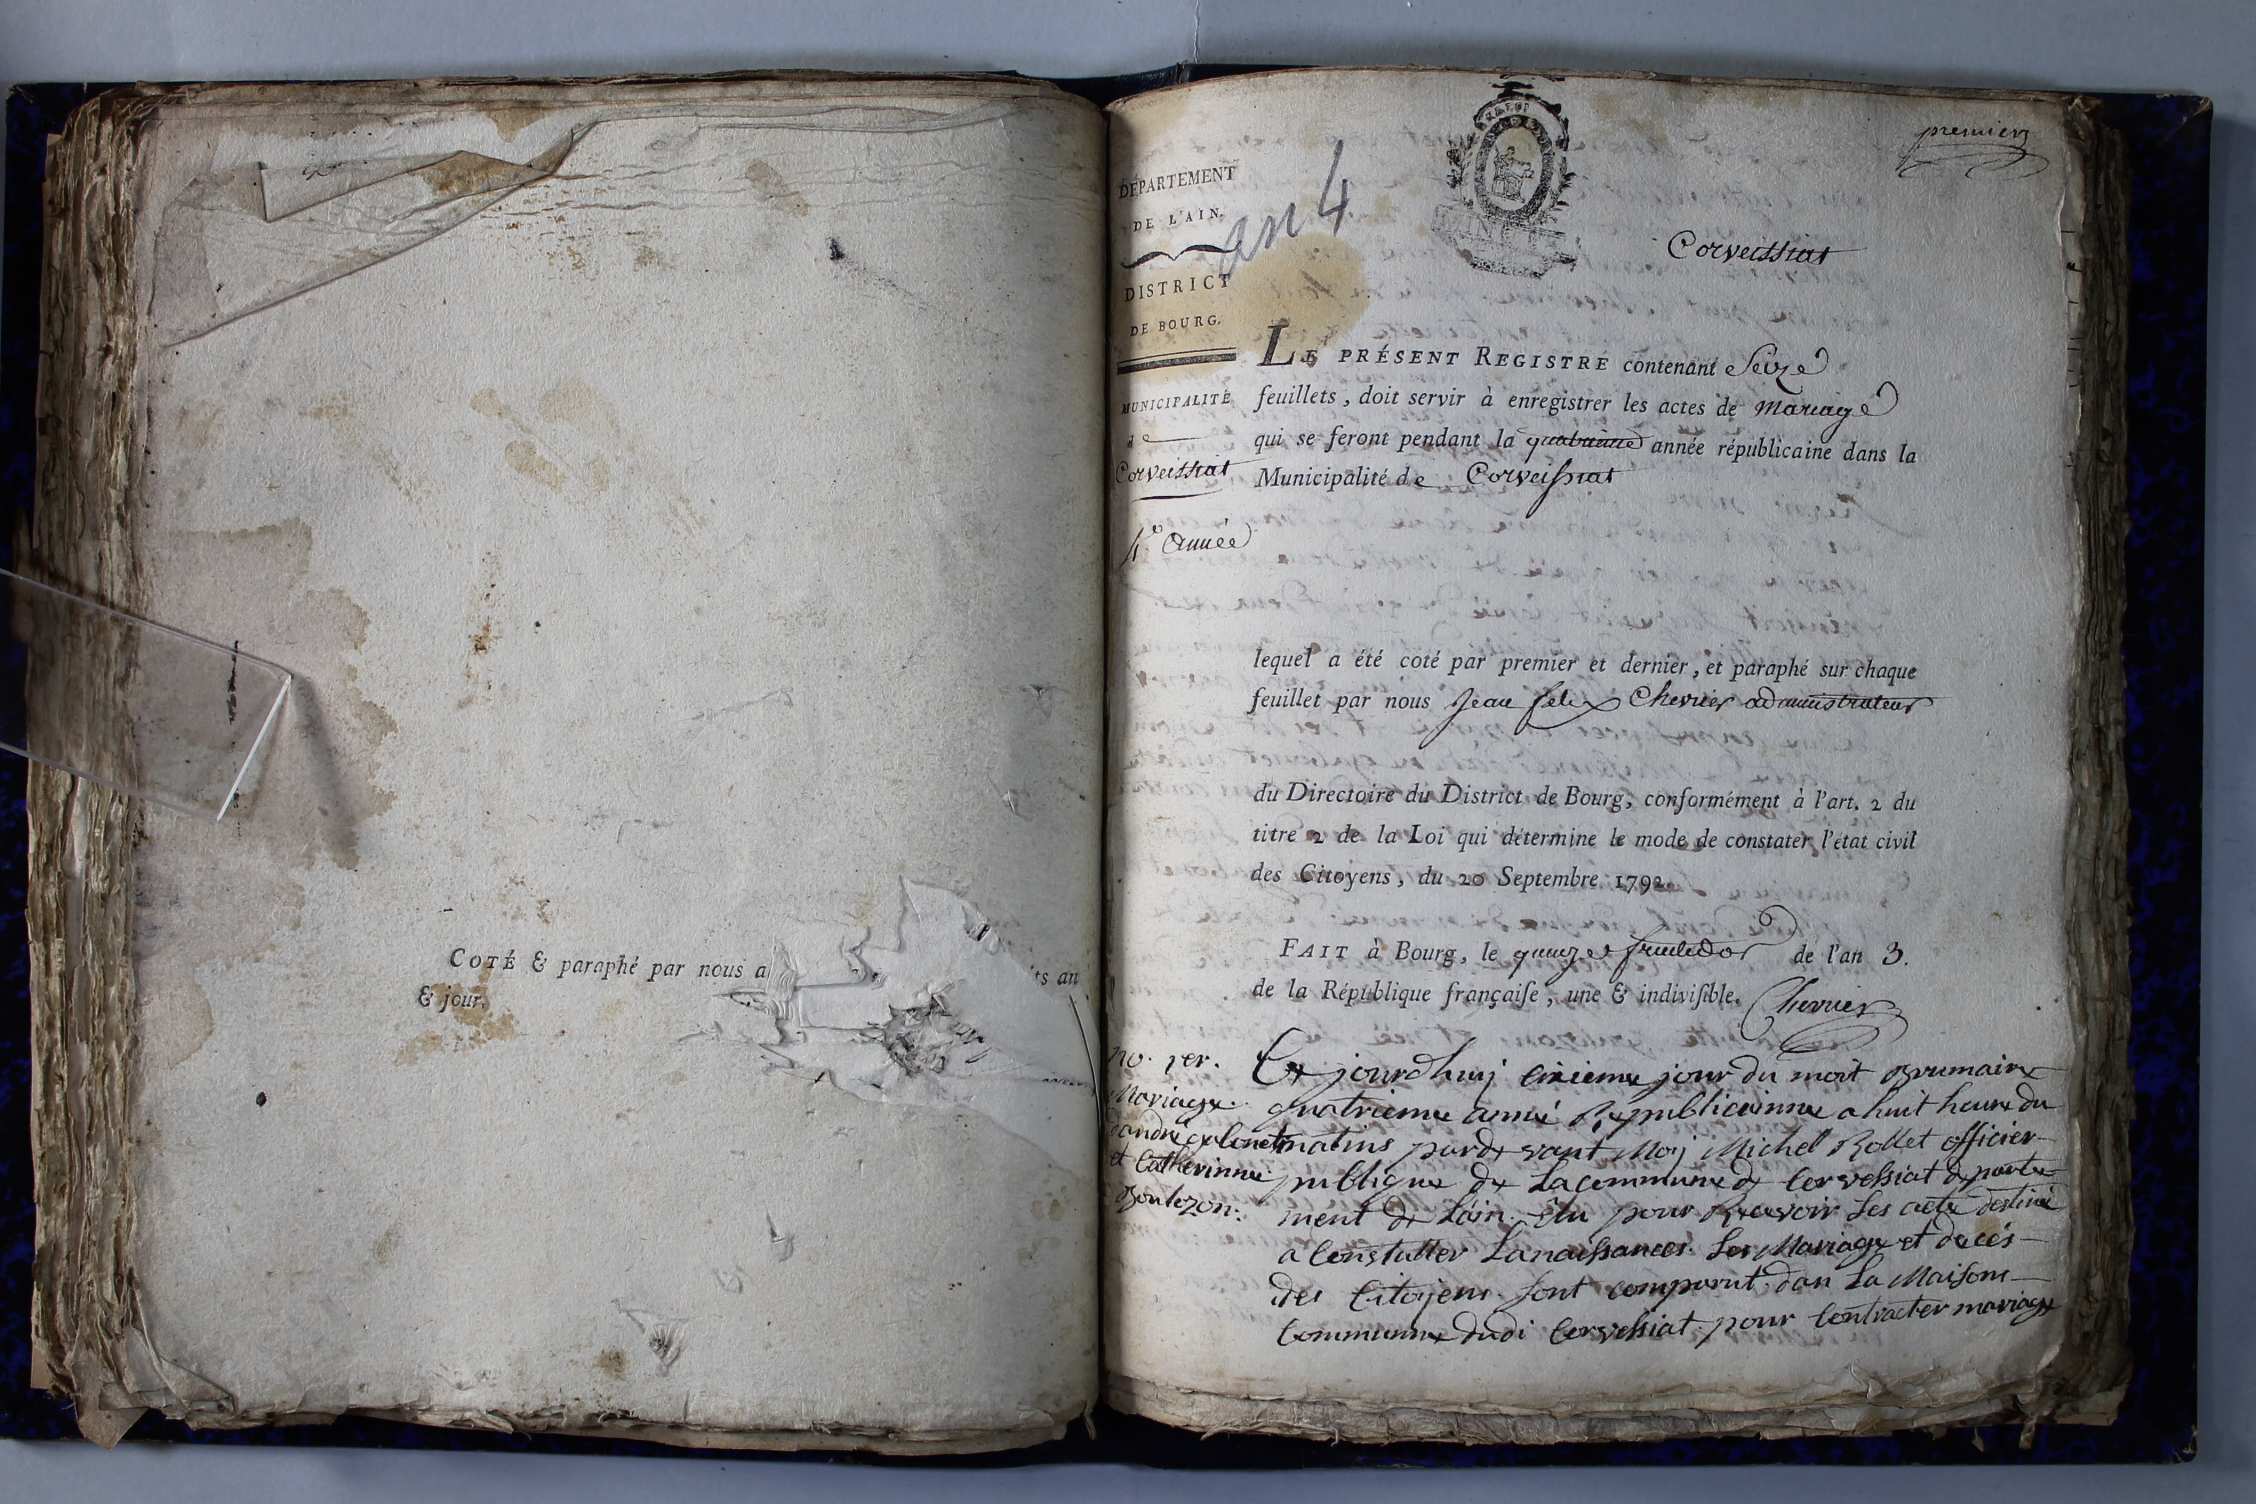 COTÉ & paraphé par nous a
ts an
& jour.
premier
DÉPARTEMENT
DE L'AIN.
an 4
DISTRICT
DE BOURG.
Corveissiat
LE PRÉSENT REGISTRE contenant Seize
feuillets, doit servir à enregistrer les actes de mariage
qui se feront pendant la quatrieme année républicaine dans la
Municipalité de Corveissiat
MUNICIPALITÉ
de
Corveissiat
4e année
lequel a été coté par premier et dernier, et paraphé sur chaque
feuillet par nous Jean felix Chevrier administrateur
du Directoire du District de Bourg, conformément à l'art. 2 du
titre 2 de la Loi qui détermine le mode de constater l'état civil
des Citoyens, du 20 Septembre 1792.
FAIT à Bourg, le quinze fructidor de l'an 3.
de la République françaiſe, une & indiviſible. Chevrier
no. 1er.
Mariage
d'andré
et Catherinne
Boulezon
jourdhuj jour du moit Brumaire
quatrieme anné Republicainne a huit heure du
matins parde vant Moij Michel Rollet officier
publique de La commune de Corvessiat departe
ment de Lain. élu pour Recevoir Les acte destiné
a Constatter La naissances. Les Mariage et décés
des Citoijens. sont comparut dan La Maison
Commune dudi Corvessiat. pour Contracter mariage